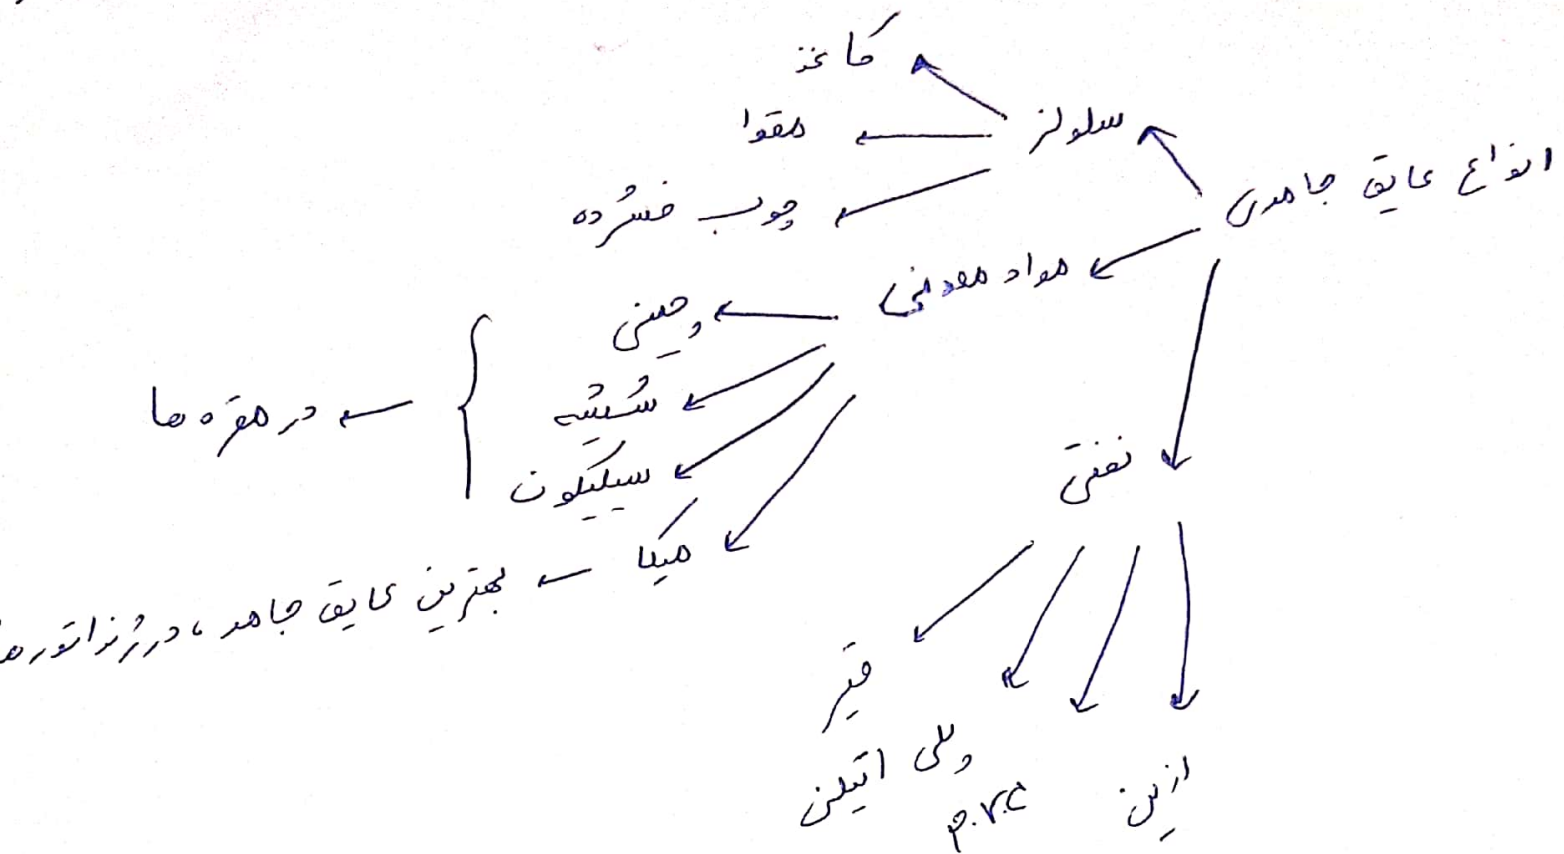 انواع عایق جامدی
سلولز
کاغذ
مقوا
چوب فشرده
مواد معدنی
چینی
شیشه
سیلیکون
در مقره ها
میکا
بهترین عایق جامد، در ژنراتورها
نفتی
قیر
پلی اتیلن
P.V.C
ازین